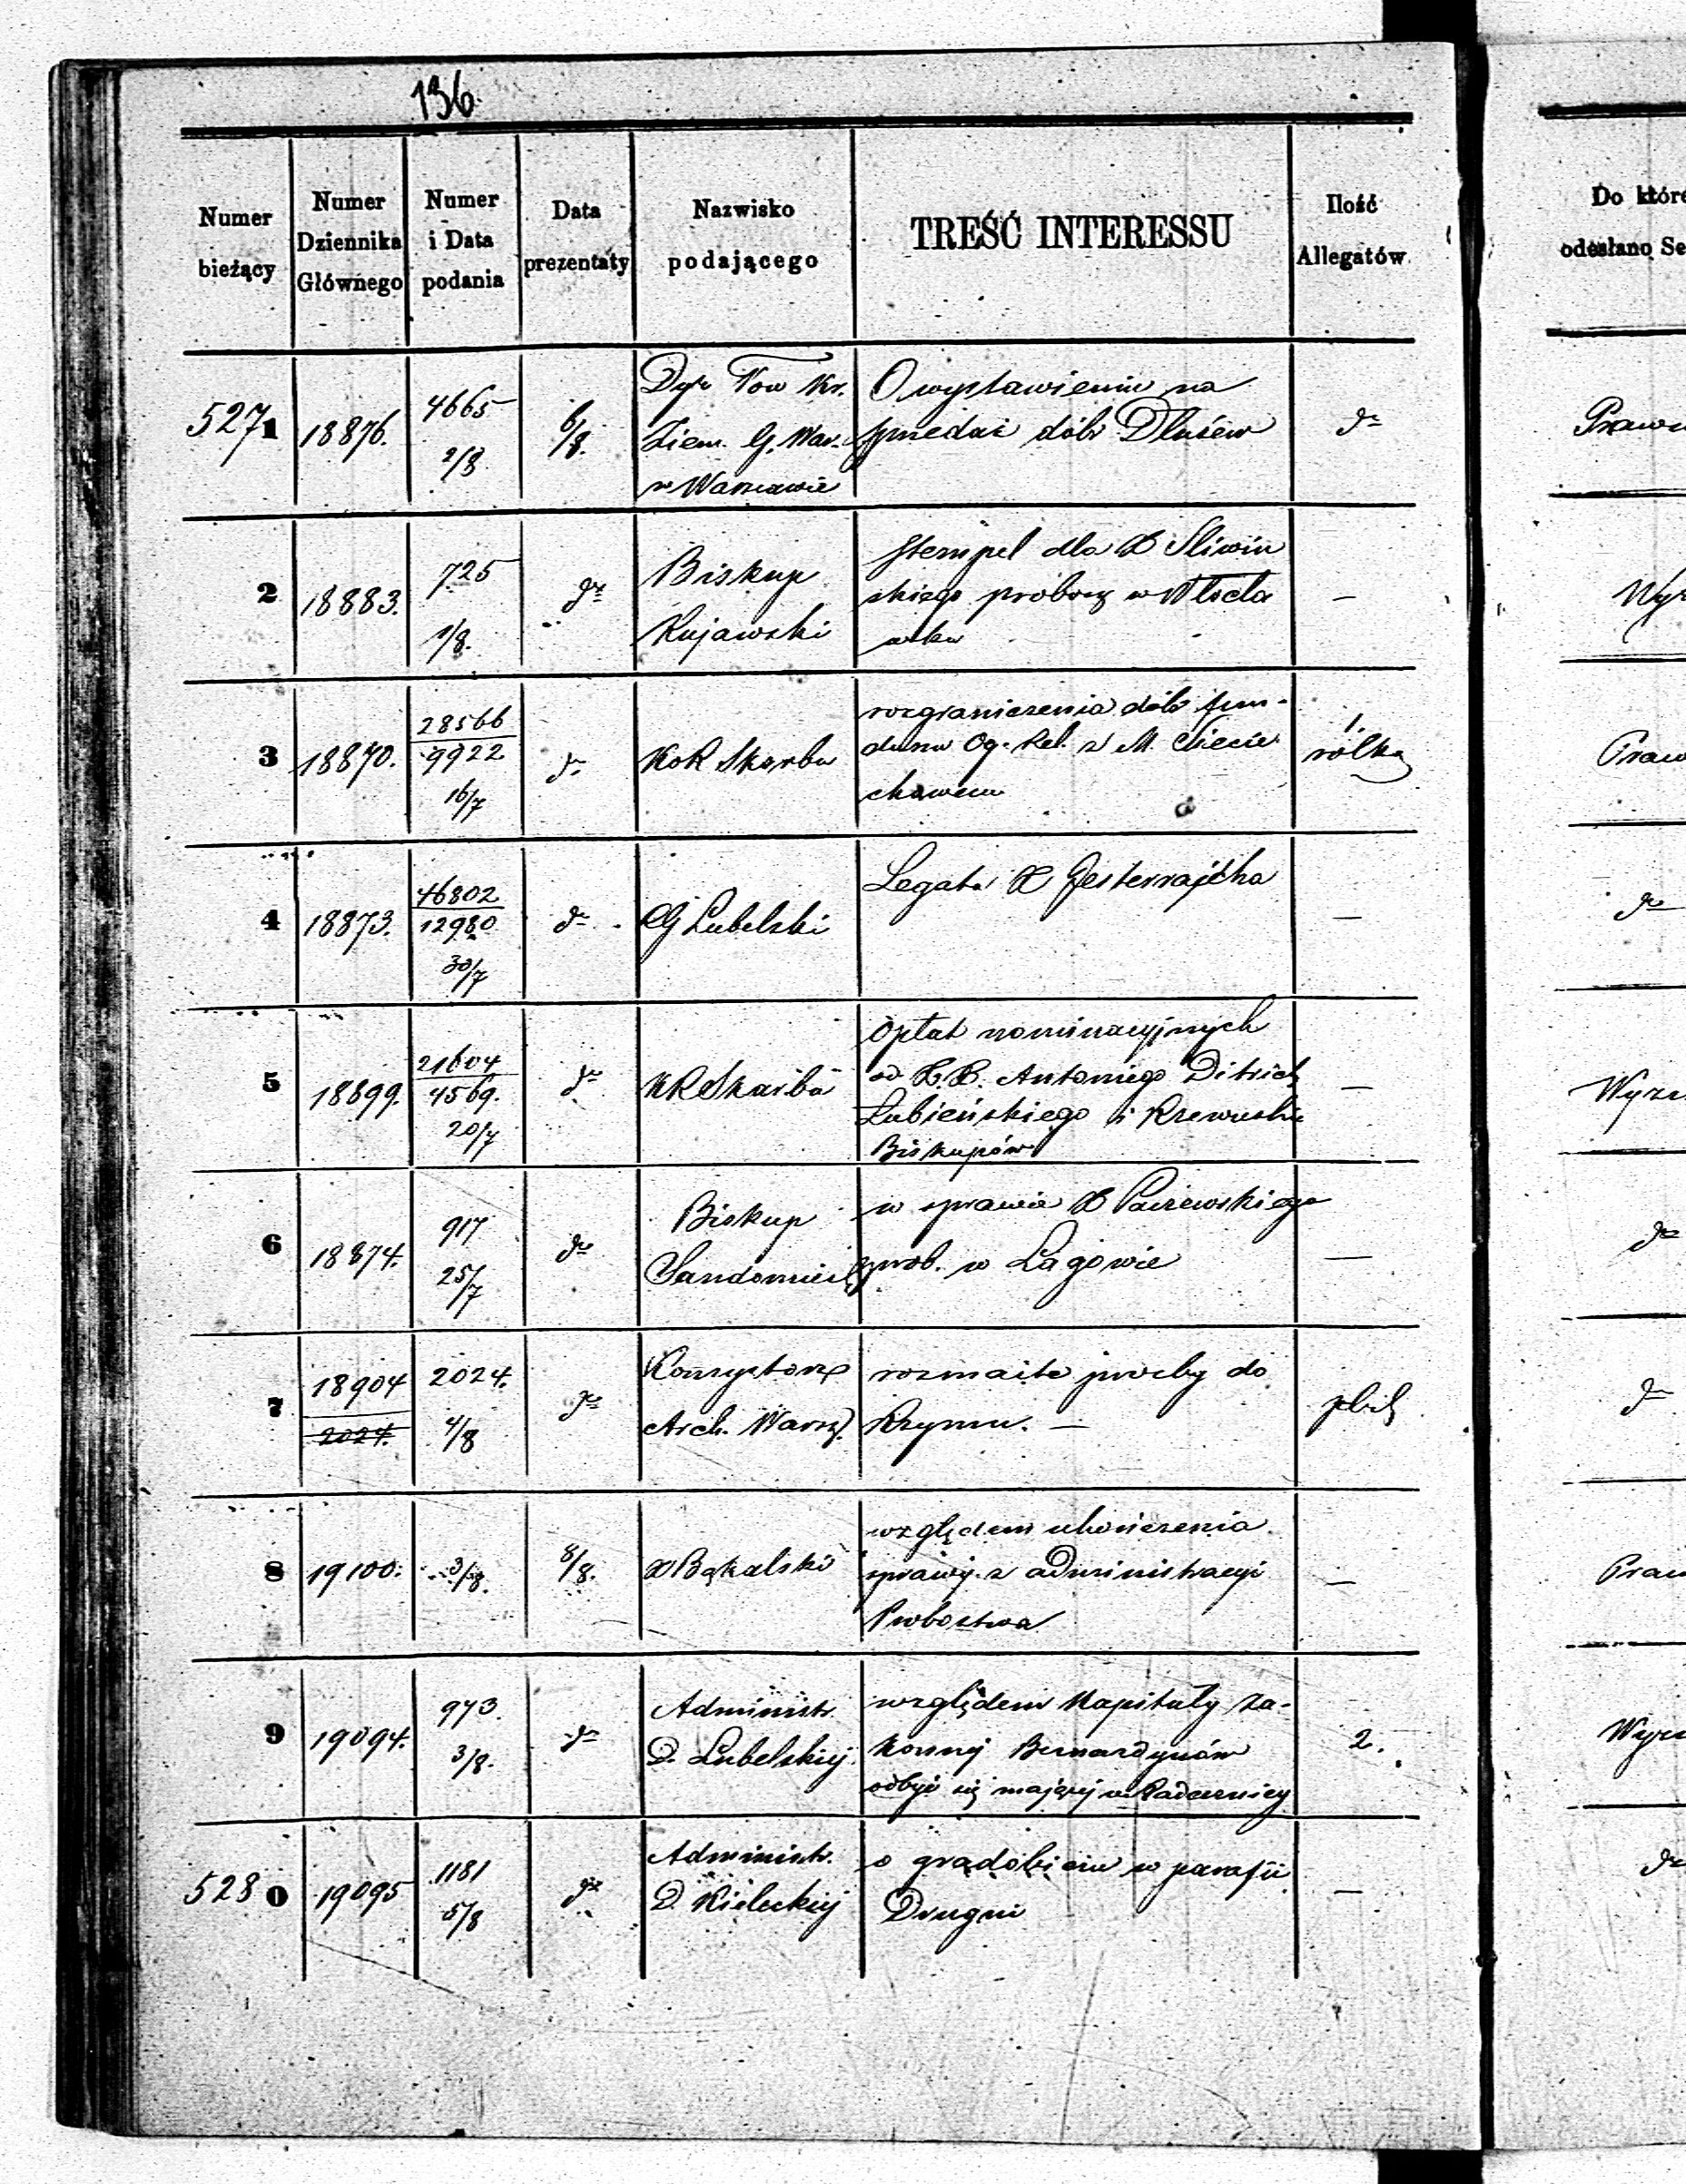 136.
Numer bieżący
Numer Dziennika Głównego
Numer i Data podania
Data prezentaty
Nazwisko podającego
TREŚĆ INTERESSU
Ilość Allegatów
Do któr
odesłano Se
5271 18876. 4665 2/8 6/8. Dyr Tow Kr. Ziem. G. War. w Warszawie
O wystawieniu na
sprzedaż dóbr Dłużew
dto
Prawn
2 18883. 725 1/8. dto Biskup Kujawski
stempel dla X Sliwiń
skiego probosz w Włocła
wku
—
Wyz
3 18870. 28566 / 9922 16/7 dto KoR Skarbu
rozgraniczenia dóbr fun-
duszu Og. Rel. z M. Siecie
chowem
1 rolka
Praw
4 18873. 46802 / 12980 30/7 dto RG Lubelski
Legatu X
—
dto
5 18899. 21604 / 4569. 20/7 dto KRSkarbu
opłat nominacyjnych
od X.X. Antoniego Ditrich
Łubieńskiego i Rzewuskie
Biskupów
—
Wyzn
6 18874. 917 25/7 dto Biskup Sandomier
w sprawie X
prob. w Łagowie
—
dto
7 18904 2024. 2024. 4/8 dto Konsystorz Arch. Warsz.
rozmaite prośby do
Rzymu. —
plik
dto
8 19100. 3/8. 8/8. X Bąkalski
względem ukończenia
sprawy z administracyi
Probostwa
—
Praw
9 19094. 973. 3/8. dto Administr. D. Lubelskiej
względem Kapituły Za-
konnej Bernardynów
odbyć się mającej w Radecznicy
2.
Wyzn
5280 19095 1181 5/8 dto Administr. D. Kieleckiej
o gradobiciu w parafii
Drugni
—
dto